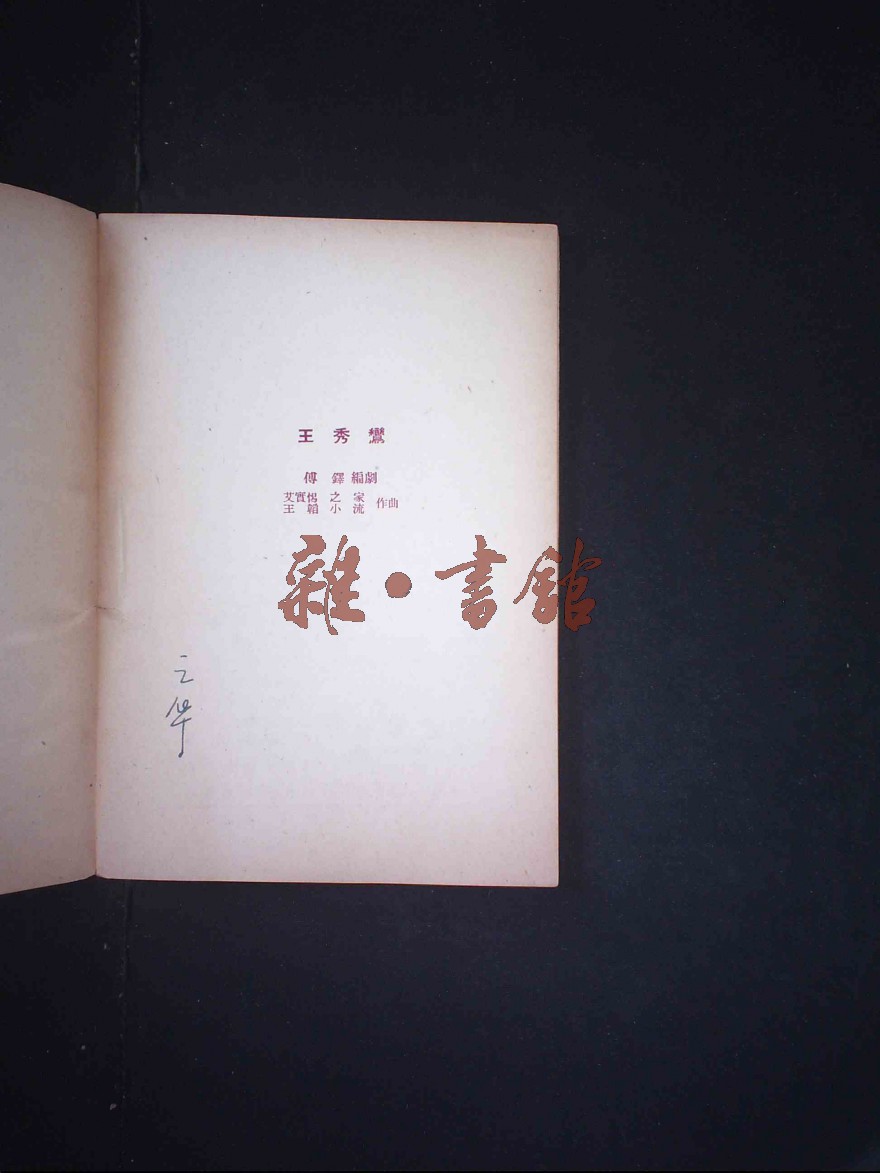 王秀鸞
傅鐸編劇
艾實惕 之家 作曲
王韜 小流
雜·書館